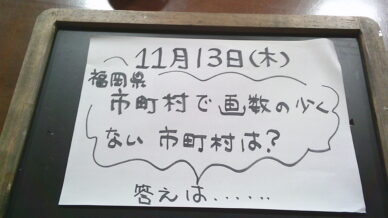 11月13日(木)
福岡県
市町村で画数の少く
ない市町村は?
答えは......